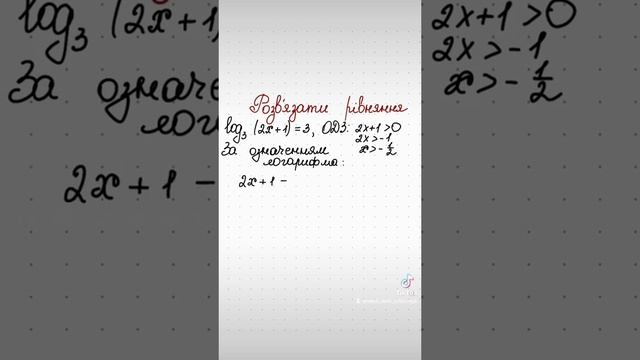 Розв'язати рівняння
log₃ (2x+1) = 3, ОДЗ: 2x+1 >0
2x > -1
x > - 1/2
За означенням
логарифма:
2x + 1 -